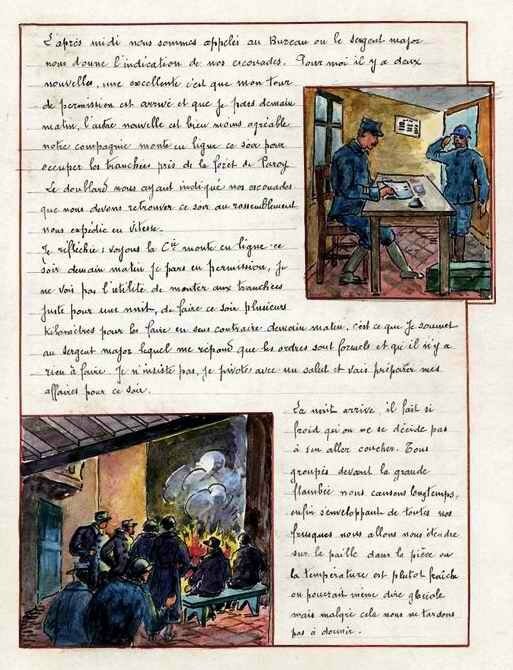 L'après midi nous sommes appelés au Bureau ou le sergent major
nous donne l'indication de nos escouades. Pour moi il y a deux
nouvelles, une excellente c'est que mon tour
de permission est arrivé et que je pars demain
matin, l'autre nouvelle est bien moins agréable
notre compagnie monte en ligne ce soir pour
occuper les tranchées près de la forêt de Paroy
Le doublard nous ayant indiqué nos escouades
que nous devons retrouver ce soir au rassemblement
nous expédie en vitesse.
Je réfléchis : voyons la Cie monte en ligne ce
soir demain matin je pars en permission, je
ne vois pas l'utilité de monter aux tranchées
juste pour une nuit, de faire ce soir plusieurs
kilomètres pour les faire en sens contraire demain matin, c'est ce que je soumet
au sergent major lequel me répond que les ordres sont formels et qu'il n'y a
rien à faire. Je n'insiste pas, je pivote avec un salut et vais préparer mes
affaires pour ce soir.
La nuit arrive, il fait si
froid qu'on ne se décide pas
à s'en aller coucher. Tous
groupés devant la grande
flambée nous causons longtemps,
enfin s'enveloppant de toutes nos
frusques nous allons nous étendre
sur la paille dans la pièce ou
la température est plutot fraîche
on pourrait même dire glaciale
mais malgré cela nous ne tardons
pas à dormir.